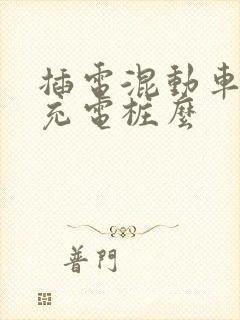 插電混動車
充電樁麼
普門